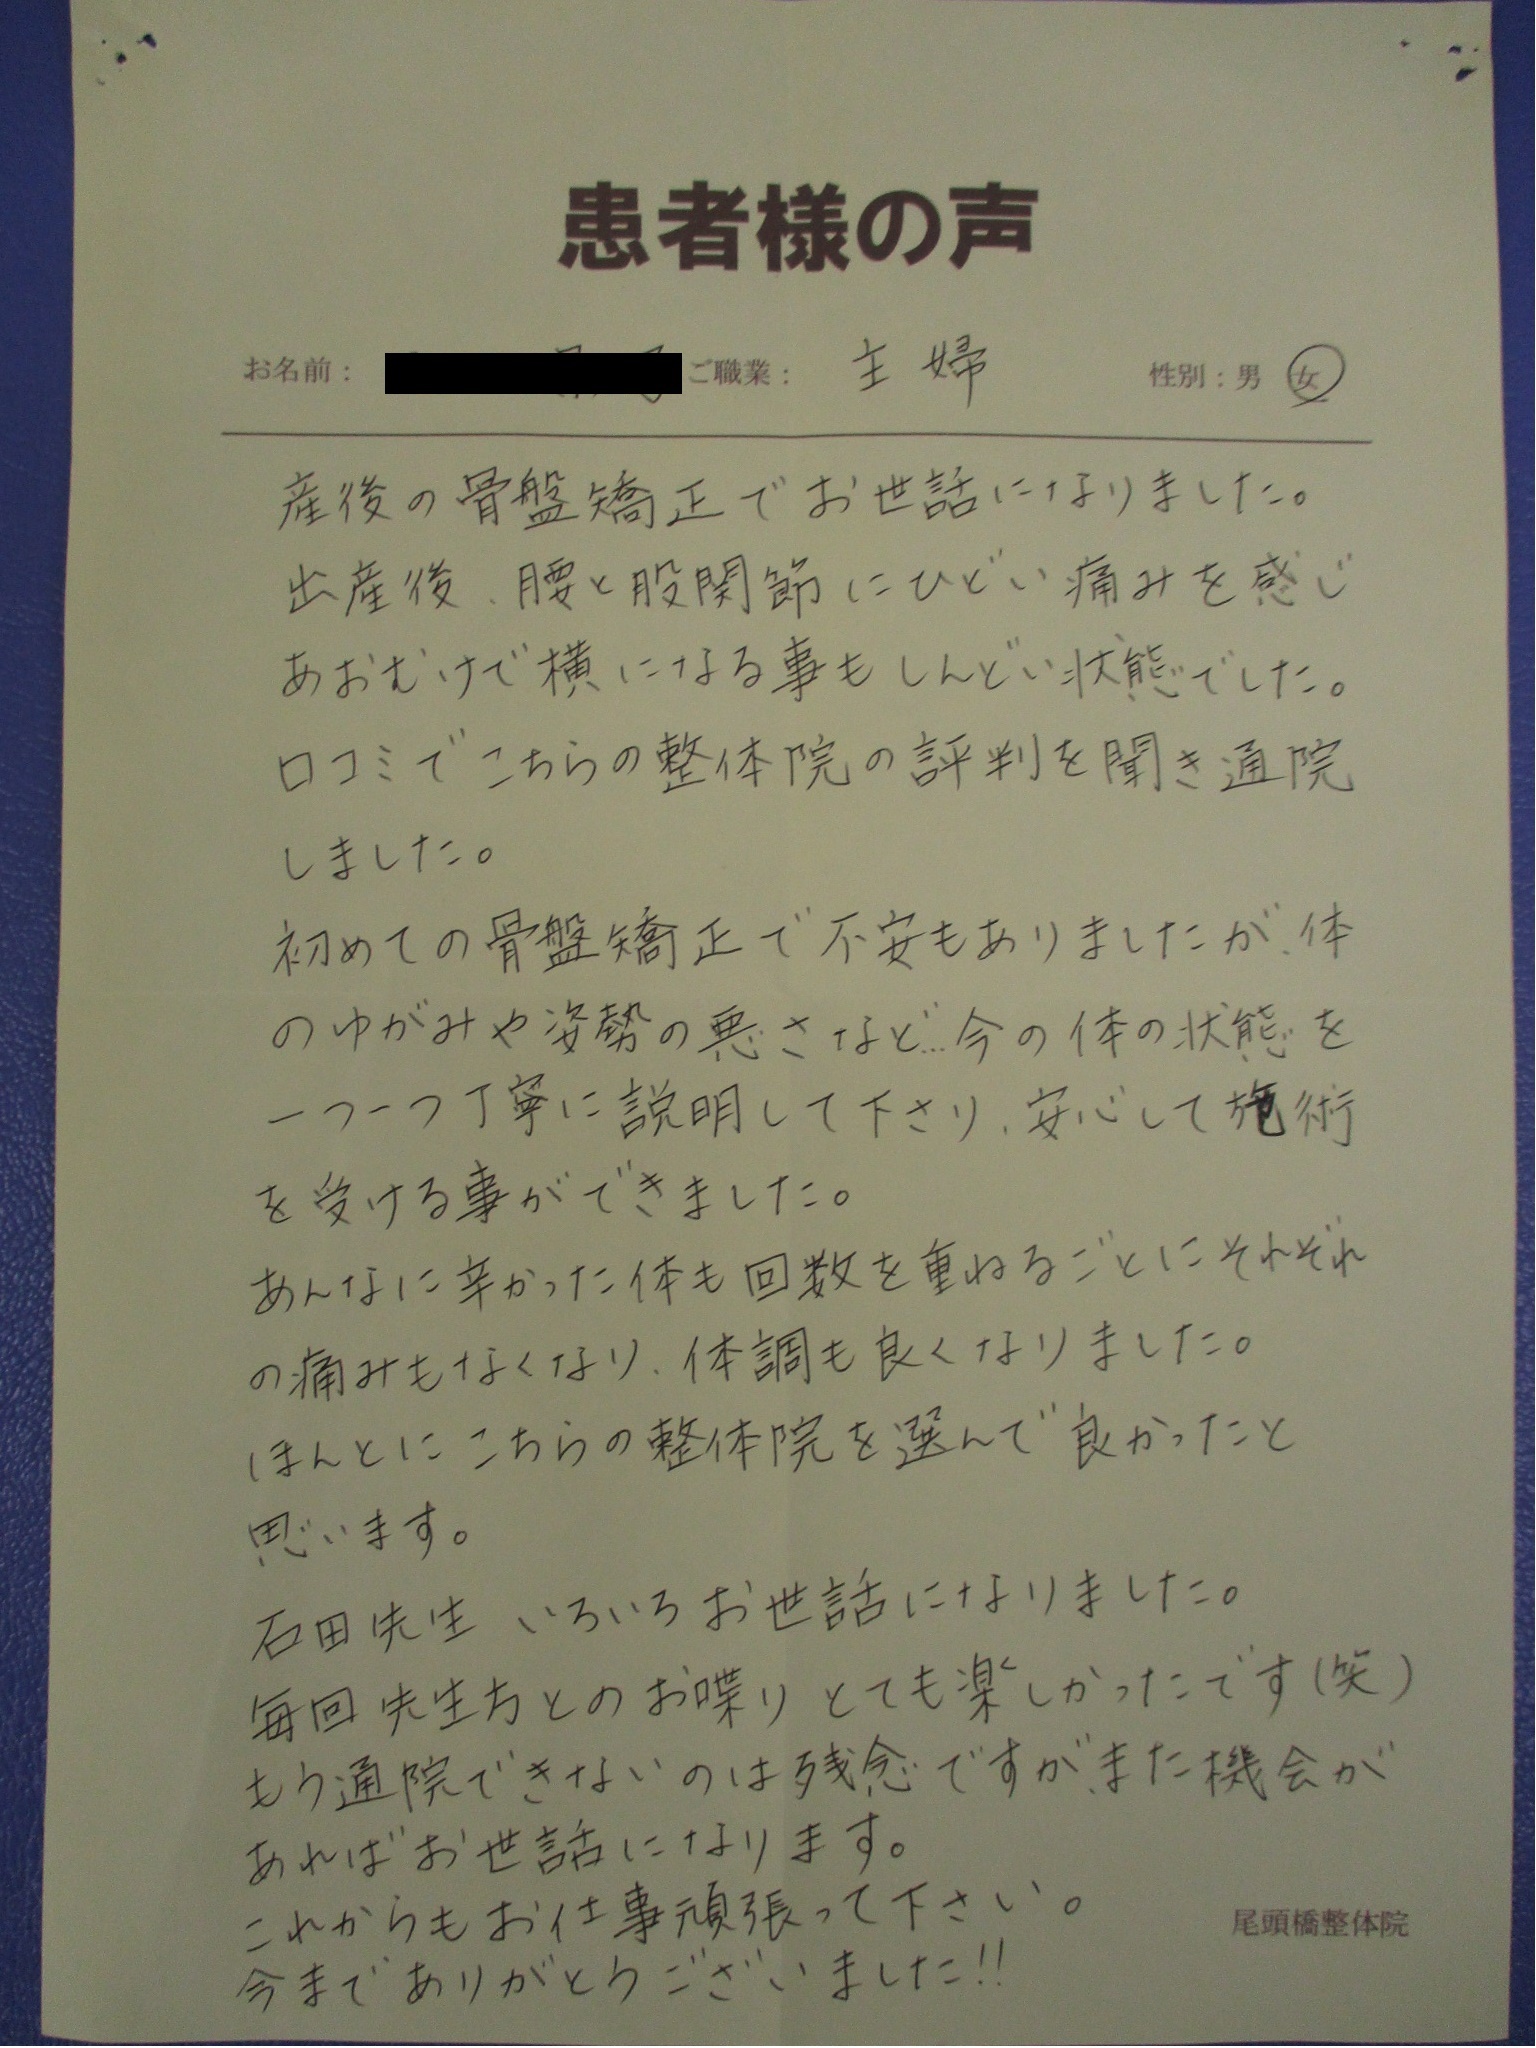 患者様の声
お名前： ご職業： 主婦 性別：男 女
産後の骨盤矯正でお世話になりました。
出産後、腰と股関節にひどい痛みを感じ
あおむけで横になる事もしんどい状態でした。
口コミでこちらの整体院の評判を聞き通院
しました。
初めての骨盤矯正で不安もありましたが、体
のゆがみや姿勢の悪さなど…今の体の状態を
一つ一つ丁寧に説明して下さり、安心して施術
を受ける事ができました。
あんなに辛かった体も回数を重ねるごとにそれぞれ
の痛みもなくなり、体調も良くなりました。
ほんとにこちらの整体院を選んで良かったと
思います。
石田先生 いろいろお世話になりました。
毎回先生方とのお喋りとても楽しかったです(笑)
もう通院できないのは残念ですが、また機会が
あればお世話になります。
これからもお仕事頑張って下さい。
尾頭橋整体院
今までありがとうございました!!